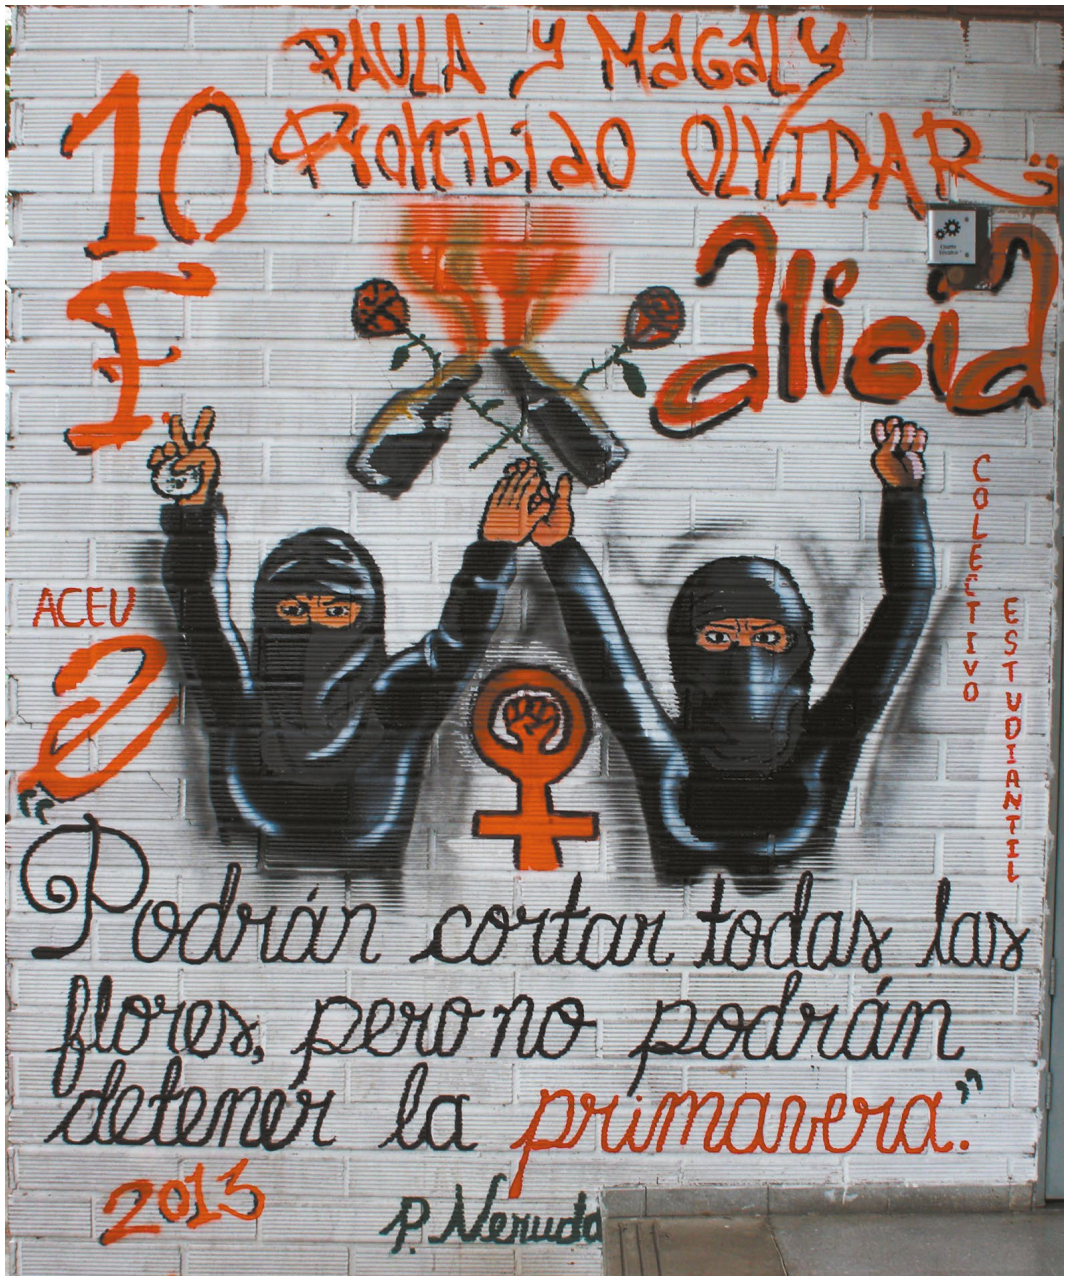 PAULA y MAGALY
PROHIBIDO OLVIDAR
10
F
alicia
COLECTIVO
ESTUDIANTIL
ACEU
2
"Podrán cortar todas las
flores, pero no podrán
detener la primavera."
2013
P. Neruda